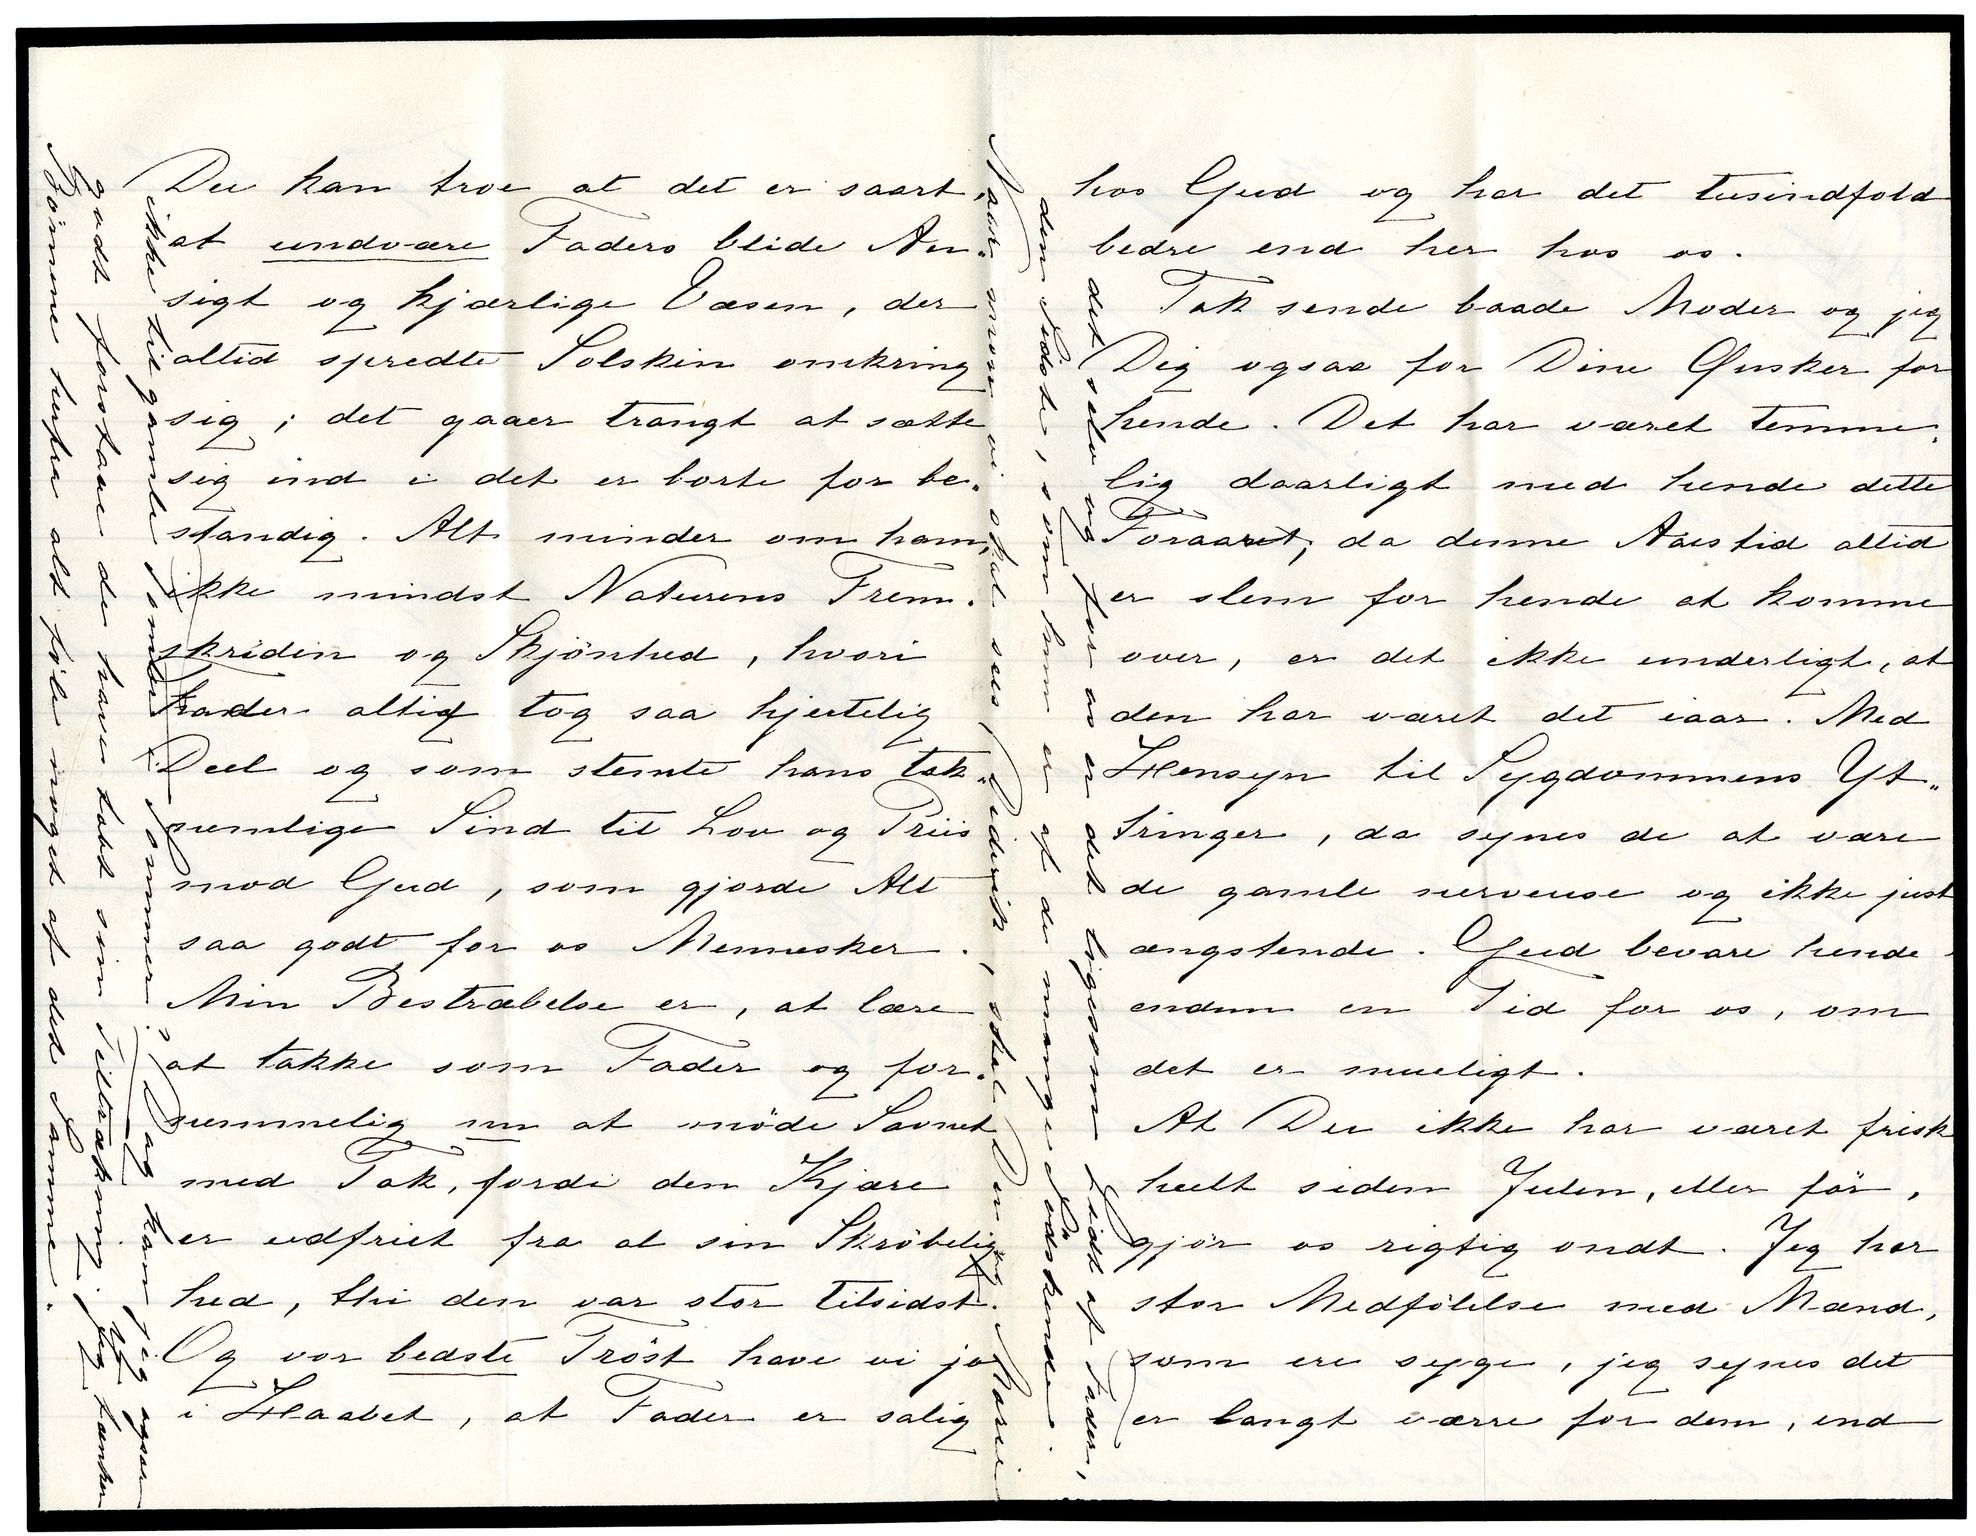 Du kan troe at det er saart,
at undvære Faders blide An-
sigt og kjærlige Væsen, der
altid spredte Solskin omkring
sig; det gaaer trangt at sætte
sig ind i det er borte for be-
standig. Alt minder om ham,
ikke mindst Naturens Frem-
skriden og Skjönhed, hvori
Fader altid tog saa hjertelig
Deel og som stemte hans tak-
nemlige Sind til Lov og Priis
mod Gud, som gjorde Alt
saa godt for os Mennesker.
Min Bestræbelse er, at lære
at takke som Fader og for-
nemmelig nu at möde Savnet
med Tak, fordi den Kjære
er udfriet fra al sin Skröbelig-
hed, thi den var stor tilsidst.
Og vor bedste Tröst have vi jo
i Haabet, at Fader er salig
hos Gud og har det tusindfold
bedre end her hos os.
Tak sende baade Moder og jeg
Dig ogsaa for Dine Ønsker for
hende. Det har været temme-
lig daarligt med hende dette
Foraaret, da denne Aarstid altid
er slem for hende at komme
over, er det ikke underligt, at
den har været det iaar. Med
Hensyn til Sygdommens Yt-
tringer, da synes de at være
de gamle nerveuse og ikke just
ængstende. Gud bevare hende
endnu en Tid for os, om
det er mueligt.
At Du ikke har været frisk
heelt siden Julen, eller för,
gjör os rigtig ondt. Jeg har
stor Medfölelse med Mænd,
som ere syge, jeg synes det
er langt værre for dem, end
det selv og for os er det ligesom Lidt af Fader,
den Sidste, som hun er af de mange Södskende.
Naar mon vi skal sees, Diderik, skal Du og Marie
ikke til gamle Sommer? Dog kan jeg ogsaa
godt forstaae de have tabt sin Tiltrækning. Jeg tænker
Börnene herfra alt föle noget af det Samme.